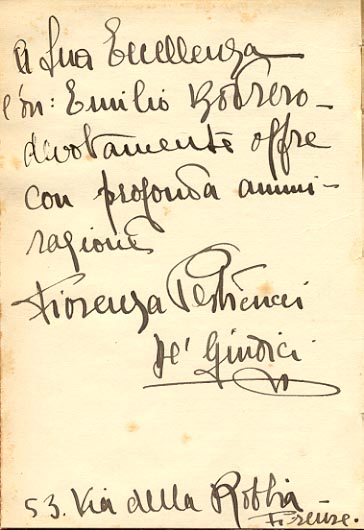 A Sua Eccellenza
l'on: Emilio Bodrero
divotamente offre
con profonda ammi-
razione
Fiorenza Perticucci
de' Giudici
53. Via della Robbia
Firenze.